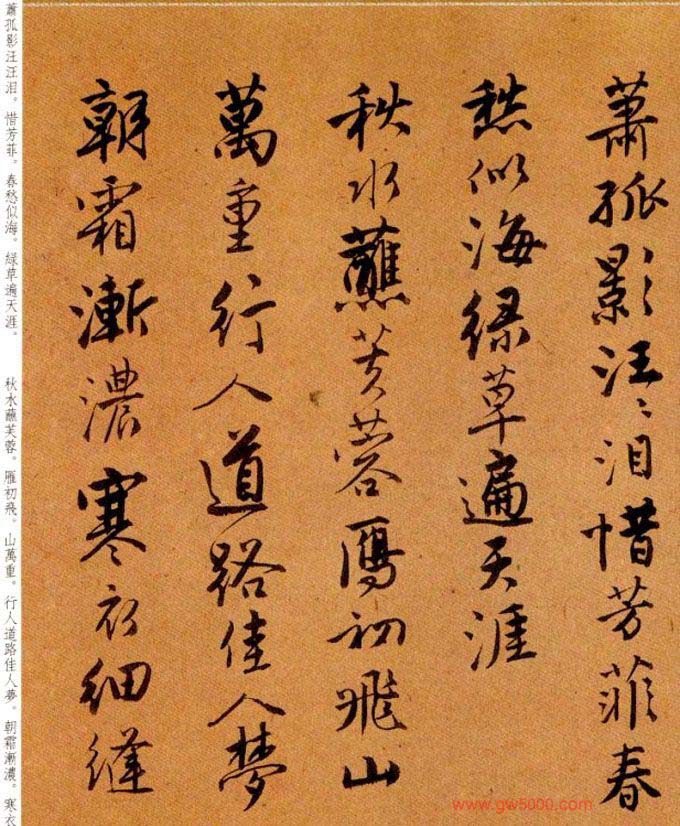 蕭孤影汪〻泪惜芳菲春
愁似海緑草遍天涯
秋水蘸芙蓉鴈初飛山
萬重行人道路佳人夢
朝霜漸濃寒衣細縫
蕭孤影汪汪泪。惜芳菲。春愁似海。緑草遍天涯。 秋水蘸芙蓉。雁初飛。山萬重。行人道路佳人夢。朝霜漸濃。寒衣
www.gw5000.com